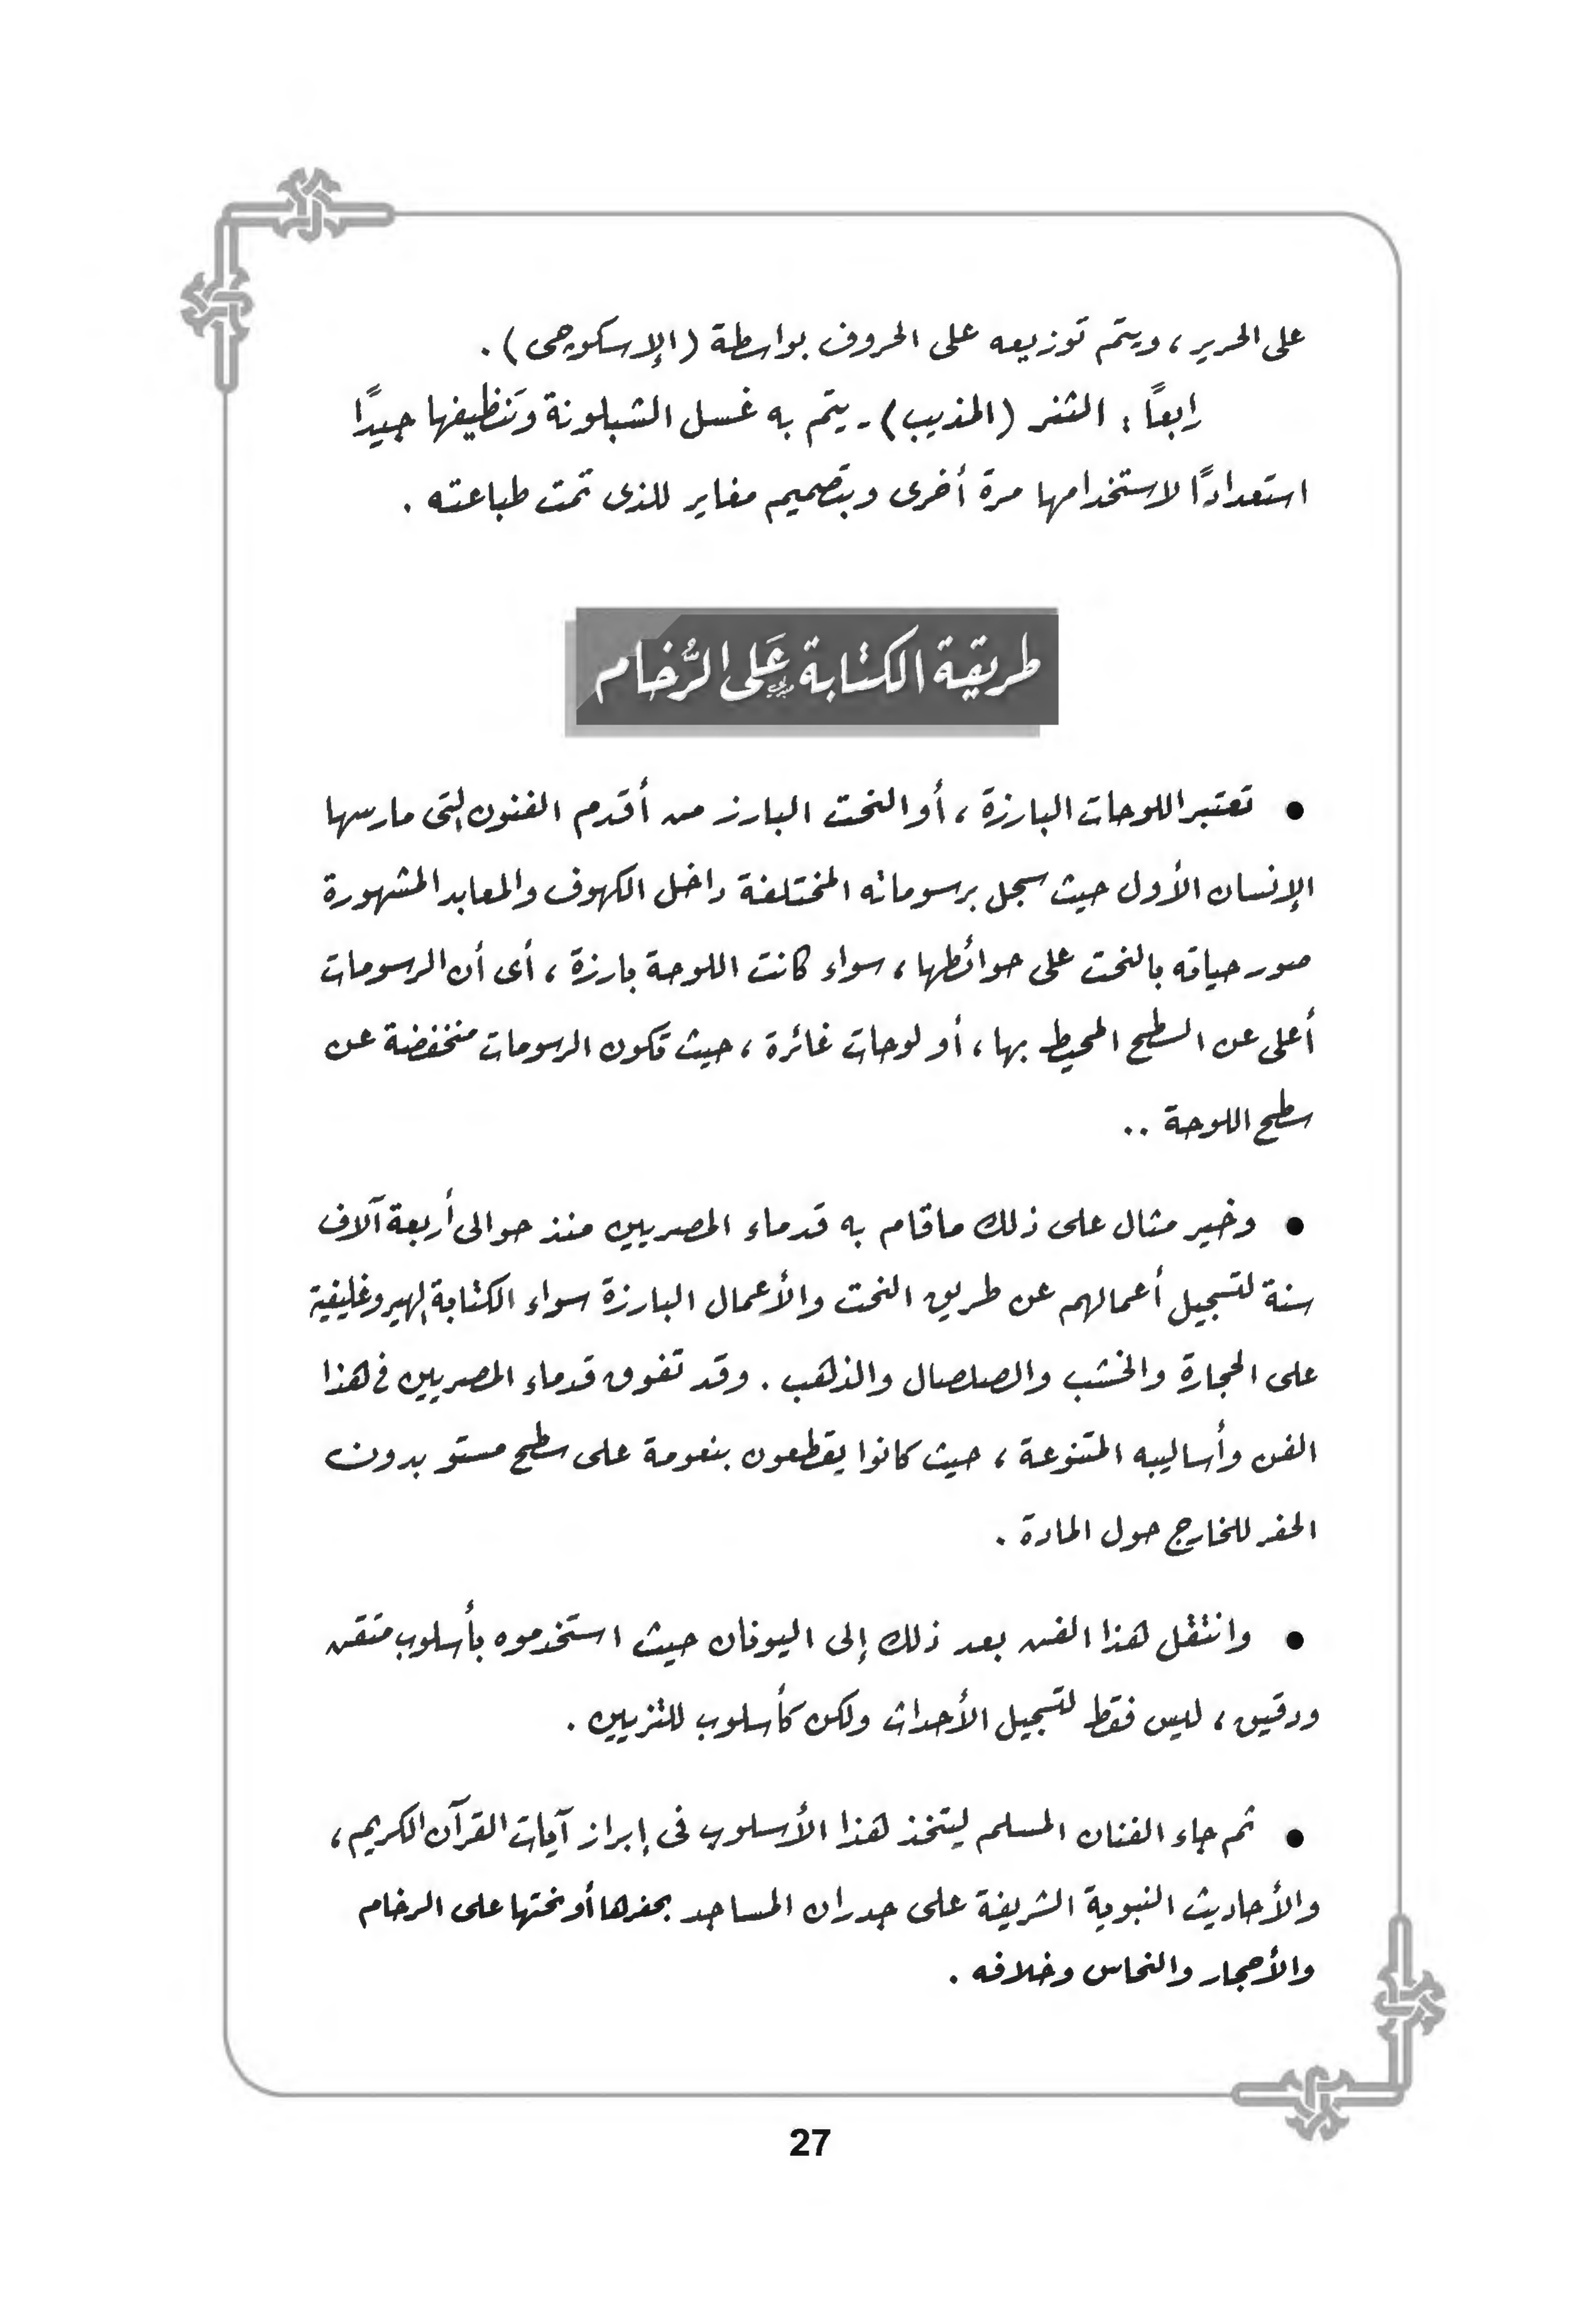 على الحرير، ويتم توزيعه على الحروف بواسطة (الإسكويجى).
رابعاً: الثنر (المذيب) - يتم به غسل الشبلونة وتَنظيفها جيدًا
استعدادًا لاستخدامها مرة أخرى وبتصميم مغاير للذى تمت طباعته.
طريقة الكتابة عَلى الرُّخام
• تعتبر اللوحات البارزة، أو النحت البارز من أقدم الفنون التى مارسها
الإنسان الأول حيث سجل برسوماته المختلفة داخل الكهوف والمعابد المشهورة
صور حياته بالنحت على حوائطها، سواء كانت اللوحة بارزة، أى أن الرسومات
أعلى عن السطح المحيط بها، أو لوحات غائرة، حيث تكون الرسومات منخفضة عن
سطح اللوحة ..
• وخير مثال على ذلك ماقام به قدماء المصريين منذ حوالى أربعة آلاف
سنة لتسجيل أعمالهم عن طريق النحت والأعمال البارزة سواء الكتابة الهيروغليفية
على الحجارة والخشب والصلصال والذهب. وقد تفوق قدماء المصريين فى هذا
الفن وأساليبه المتنوعة، حيث كانوا يقطعون بنعومة على سطح مستو بدون
الحفر للخارج حول المادة.
• وانتقل هذا الفن بعد ذلك إلى اليونان حيث استخدموه بأسلوب متقن
ودقيق، ليس فقط لتسجيل الأحداث ولكن كأسلوب للتزيين.
• ثم جاء الفنان المسلم ليتخذ هذا الأسلوب فى إبراز آيات القرآن الكريم،
والأحاديث النبوية الشريفة على جدران المساجد بحفرها أو نحتها على الرخام
والأحجار والنحاس وخلافه.
27